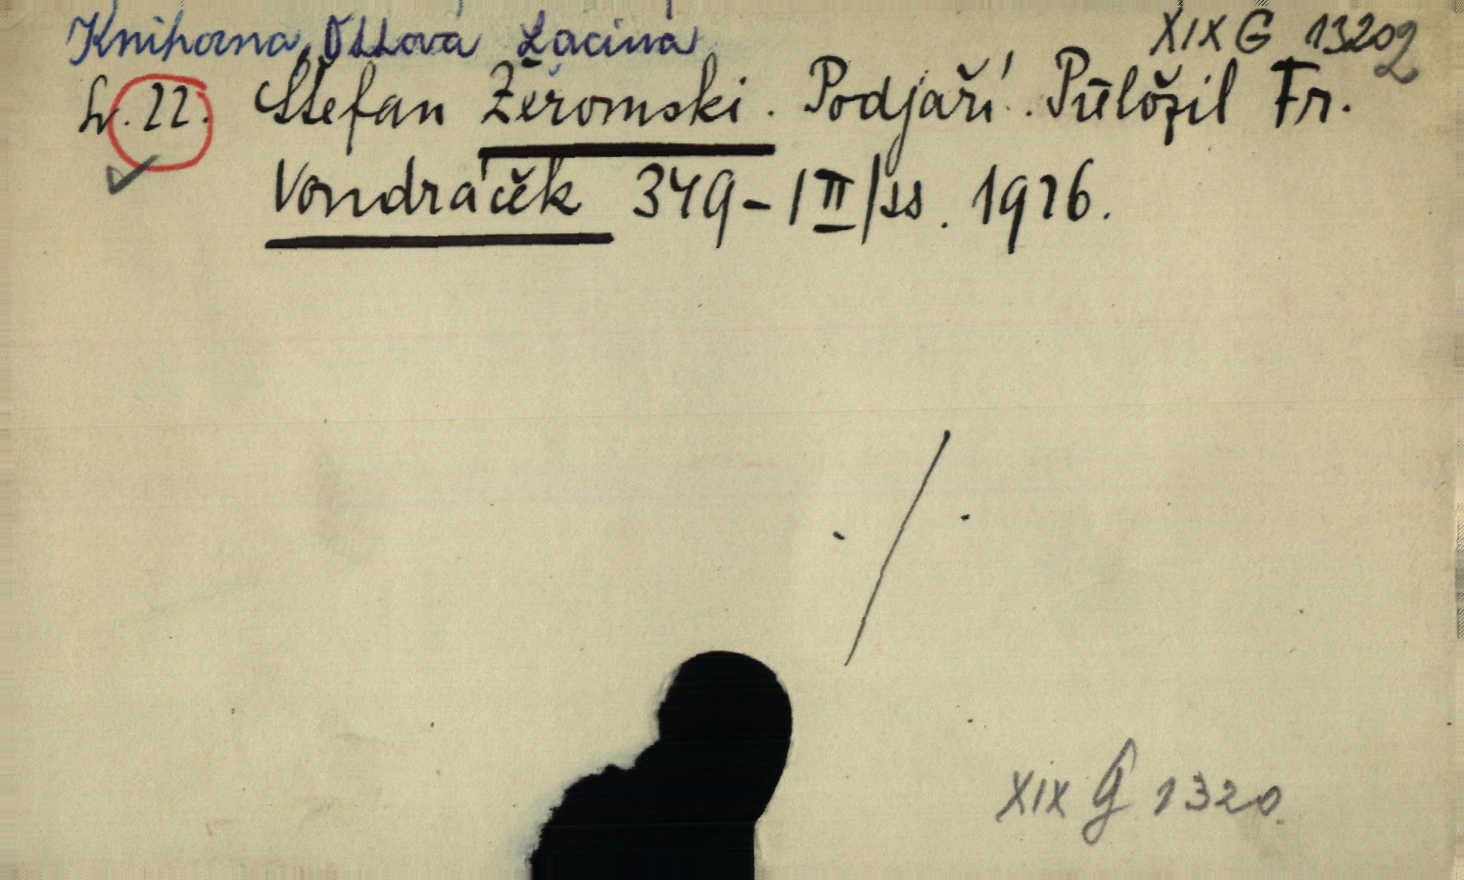 Knihovna Ottova Laciná XIX G 13202
Sv. 22. Stefan Žeromski. Podjaří. Přeložil Fr.
Vondráček 349-I II/ss. 1926.
XIX G 1320.